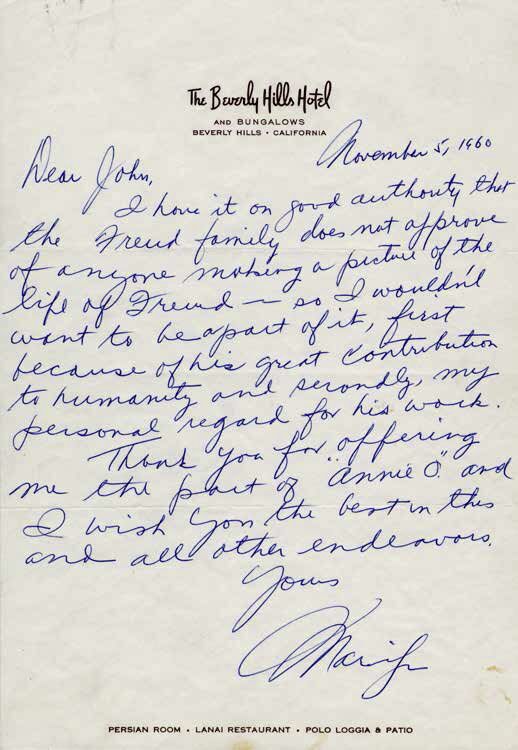 The Beverly Hills Hotel
AND BUNGALOWS
BEVERLY HILLS • CALIFORNIA
November 5, 1960
Dear John,
I have it on good authority that
the Freud family does not approve
of anyone making a picture of the
life of Freud — so I wouldn't
want to be apart of it, first
because of his great contribution
to humanity and secondly, my
personal regard for his work.
Thank you for offering
me the part of "Annie O." and
I wish you the best in this
and all other endeavors.
Yours
Marilyn
PERSIAN ROOM • LANAI RESTAURANT • POLO LOGGIA & PATIO